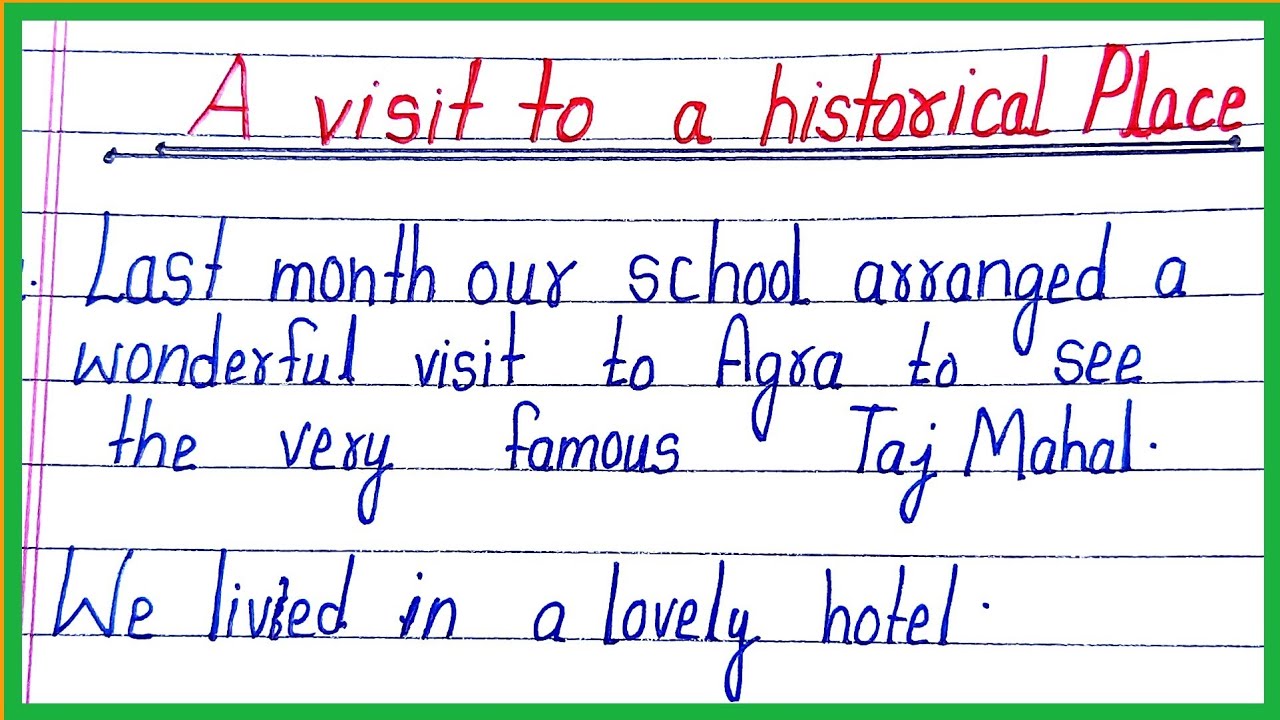 A visit to a historical Place
Last month our school arranged a
wonderful visit to Agra to see
the very famous Taj Mahal.
We lived in a lovely hotel.